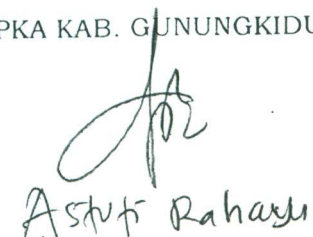 PKA KAB. GUNUNGKIDU
Astuti Rahayu